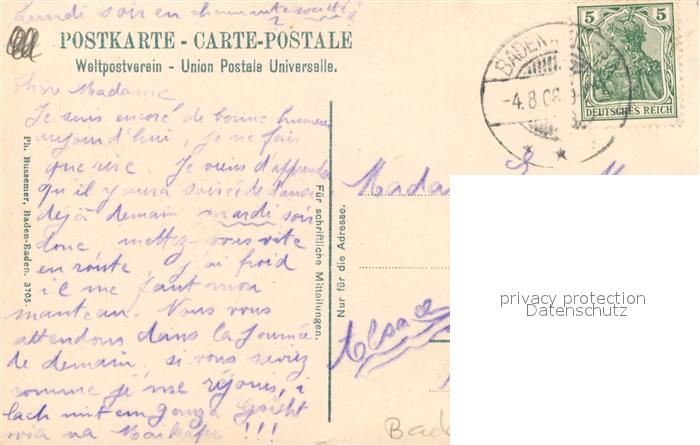 Lundi soir en charmante société
POSTKARTE - CARTE-POSTALE
Weltpostverein - Union Postale Universelle.
Chère Madame,
Je suis encore de bonne humeur
aujourd'hui, je ne fais
que rire. Je viens d'apprendre
qu'il y aura soirée de danse
déjà demain mardi soir
donc mettez-vous vite
en route, j'ai froid
il me faut mon
manteau. Nous vous
attendons dans la journée
de demain, si vous saviez
comme je me réjouis, i
lach mit em ganza Gesicht
wia na Maikäfer !!!
Ph. Bussemer, Baden-Baden. 3705.
Für schriftliche Mitteilungen.
Nur für die Adresse.
Mada
Elsace
Bad
BADEN
-4.8.08
5 5
DEUTSCHES REICH
privacy protection
Datenschutz